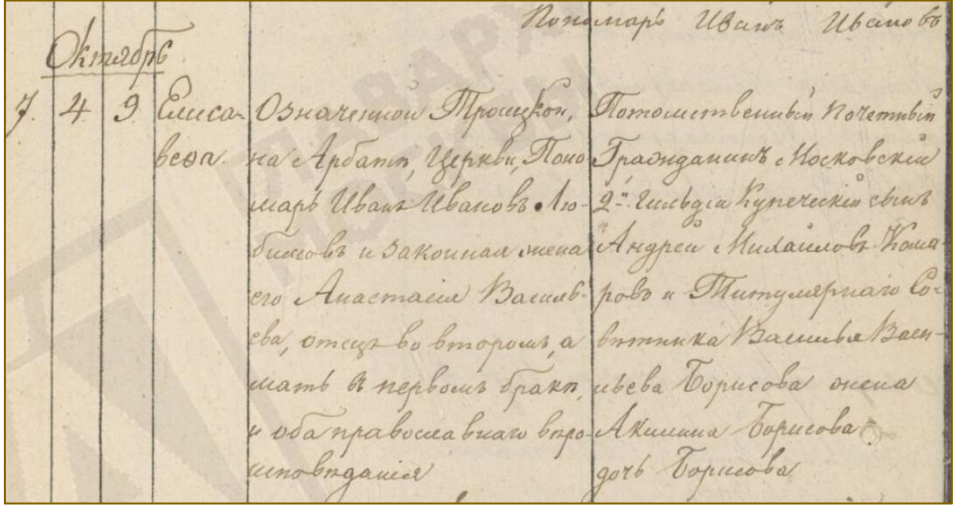 Пономарь Иванъ Ивановъ
Октябрь
7. 4 9 Елиса-
веѳа
Означенной Троицкой,
на Арбатѣ, Церкви, Поно
марь Иванъ Ивановъ Лю-
бимовъ и законная жена
его Анастасія Василь-
ева, отецъ во второмъ, а
мать въ первомъ бракѣ,
и оба православнаго вѣро-
исповѣданія
Потомственный Почетный
Гражданинъ Московскій
2й Гильдіи Купеческій сынъ
Андрей Михайловъ Кома-
ровъ и Титулярнаго Со-
вѣтника Василья Васи-
льева Борисова жена
Акилина Борисова
дочь Борисова